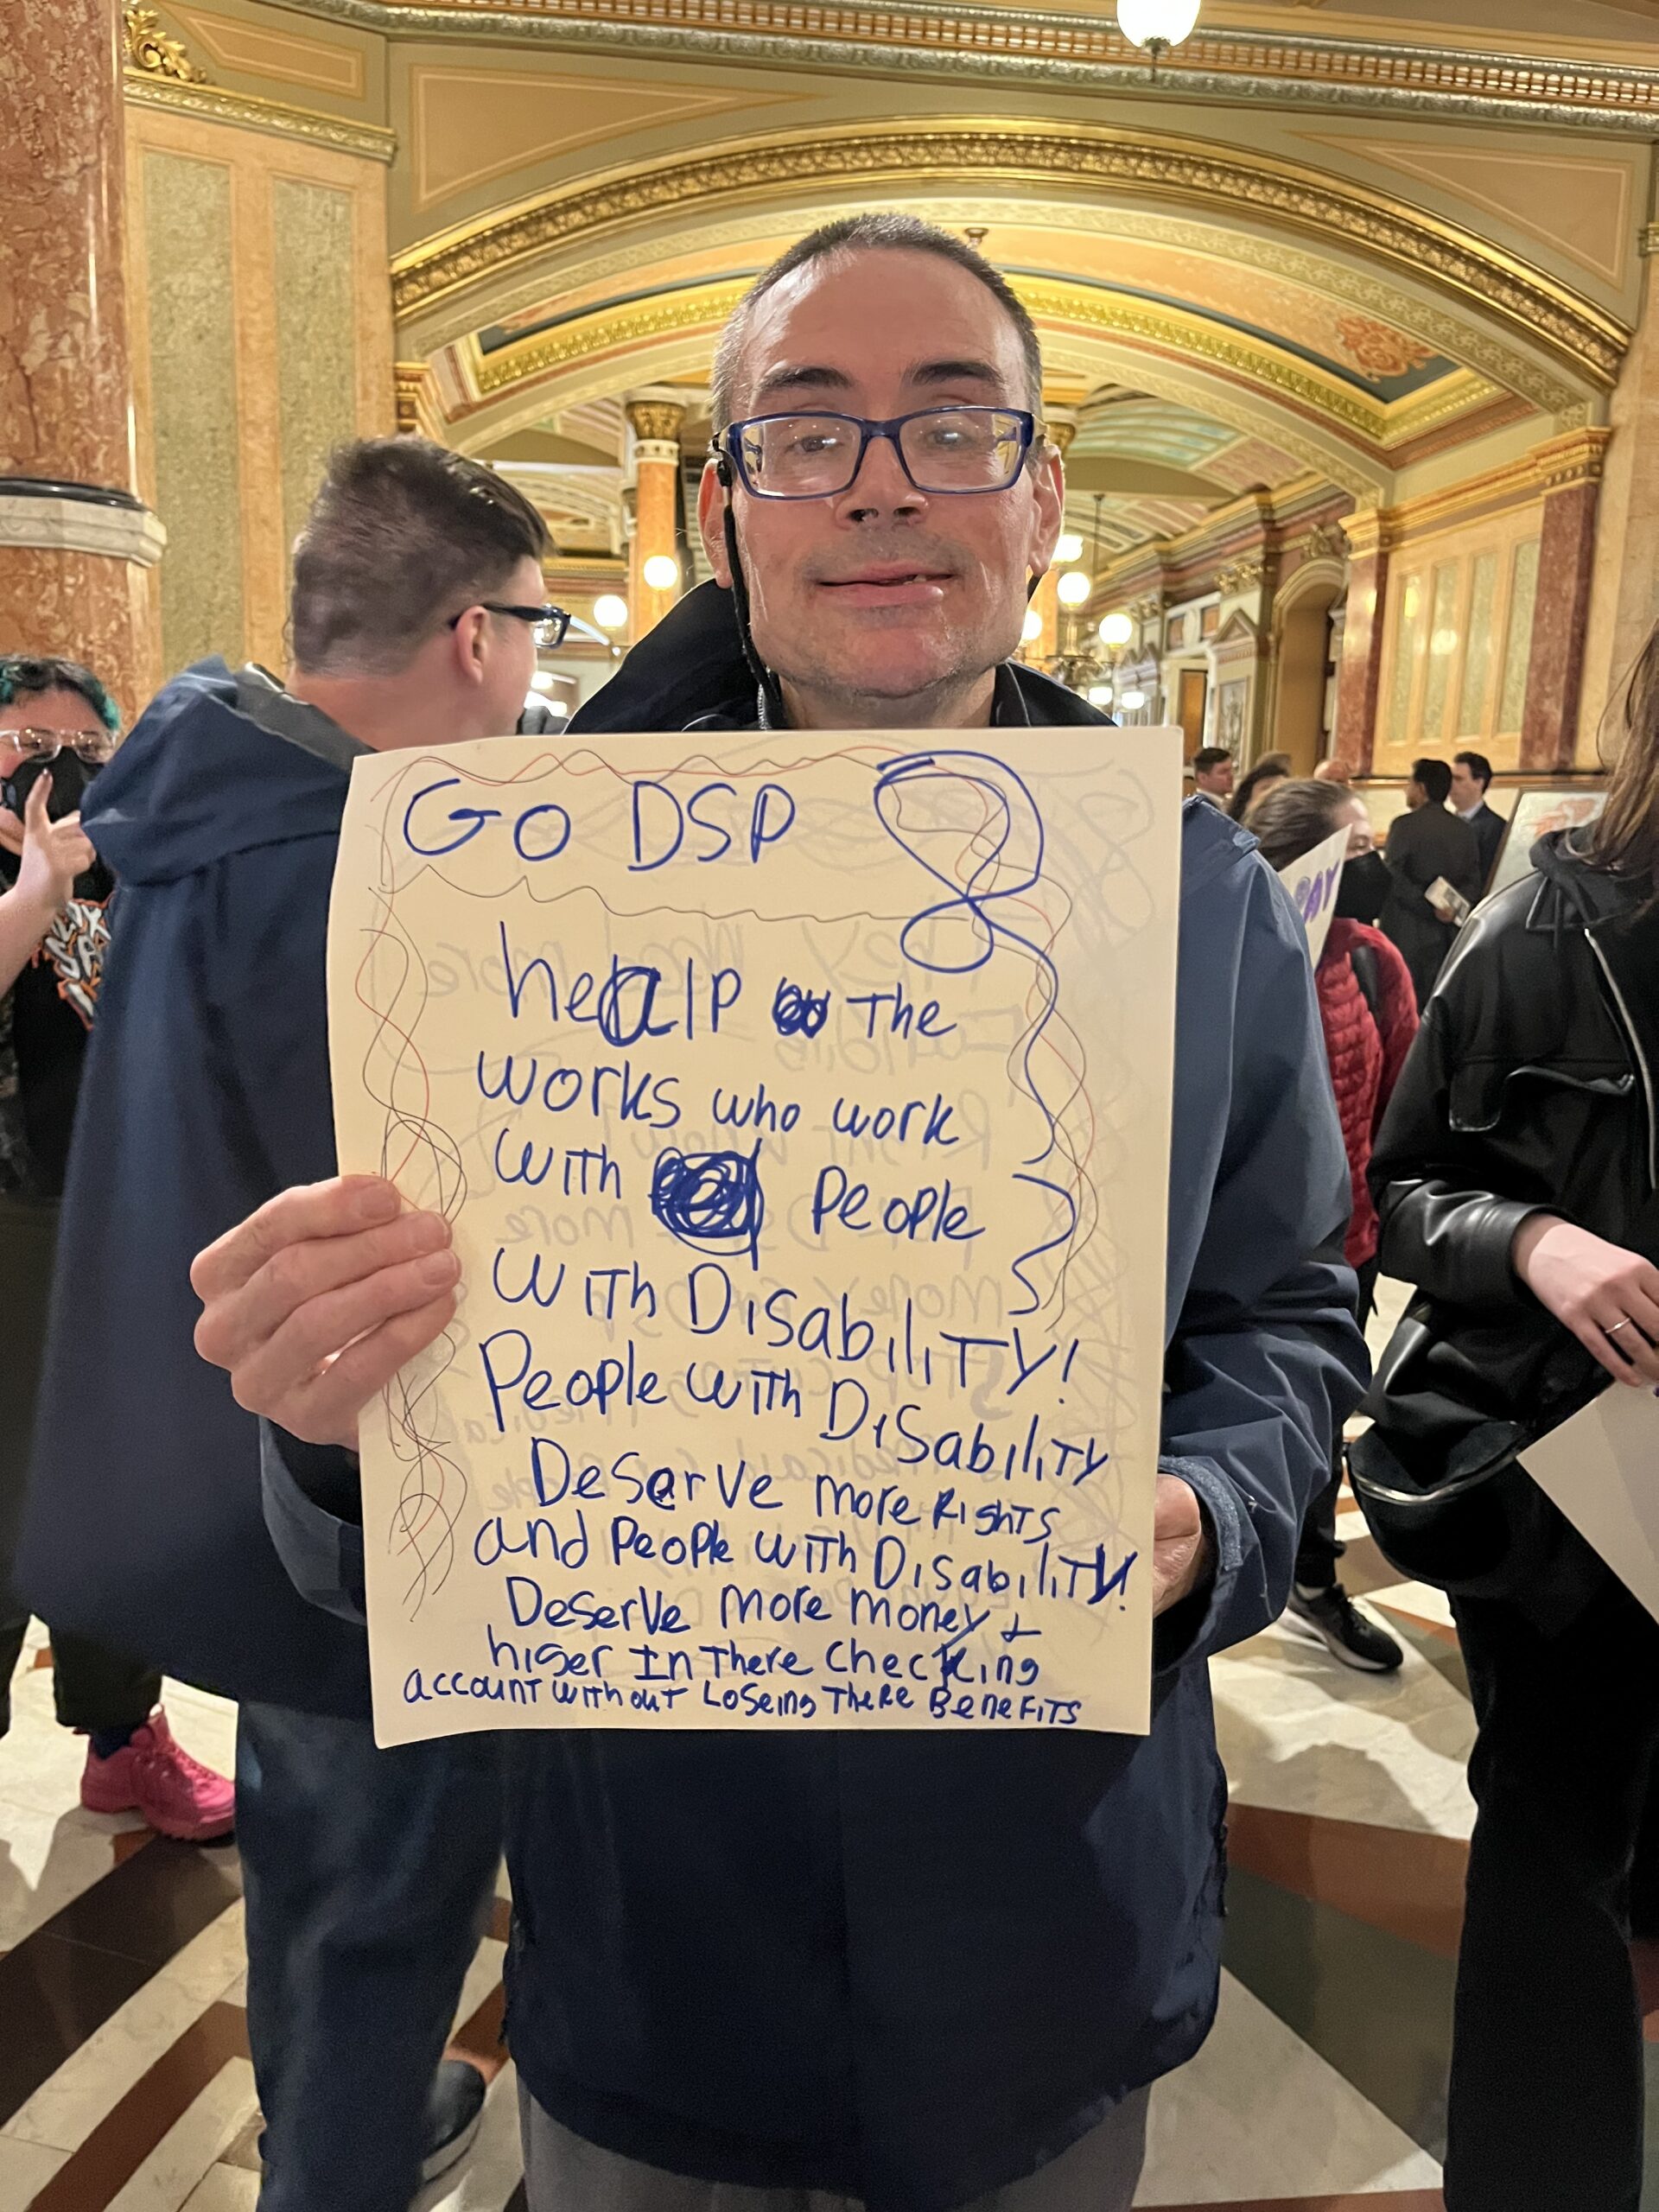 GO DSP
help The
works who work
with People
with Disability!
People with Disability
Deserve more Rights
and People with Disability!
Deserve more money +
higer In There Checking
account without Loseing There Benefits
PAY